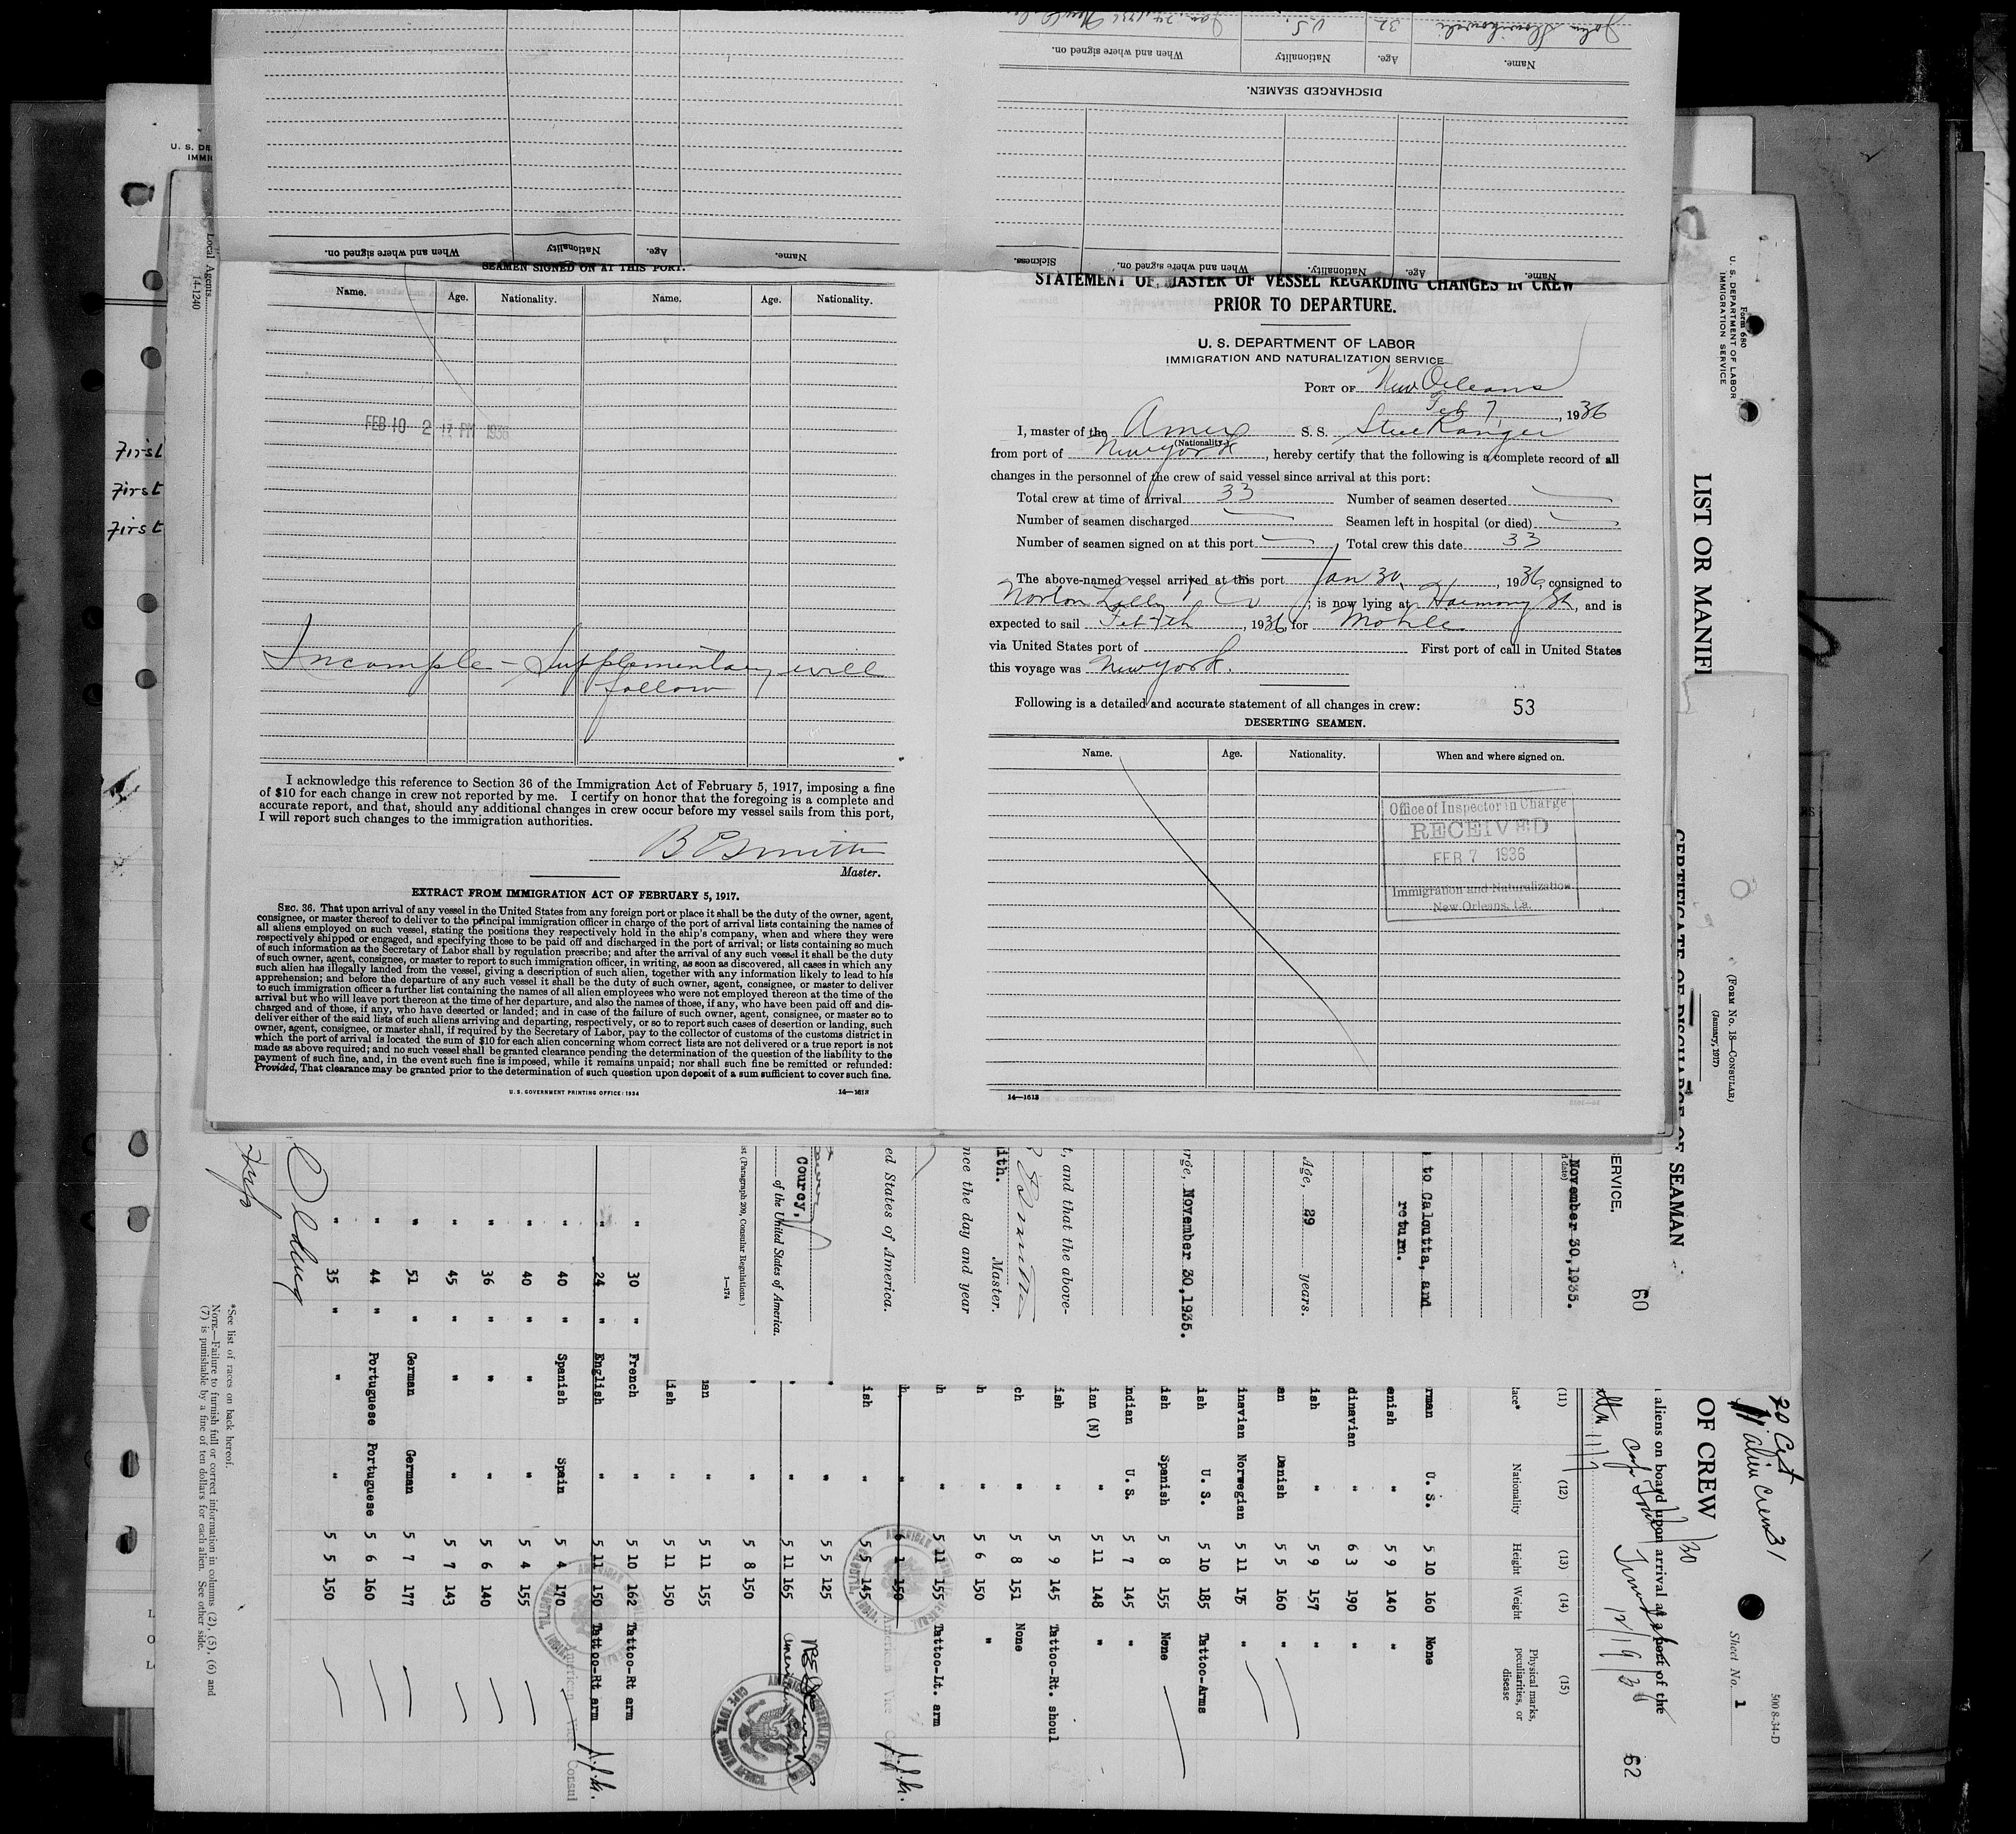 John 32 U.S. Jan. 24, 1936
Name. Age. Nationality When and where signed on.
DISCHARGED SEAMEN.
Name. Age. Nationality. When and where signed on. Sickness.
Name. Age. Nationality When and where signed on.
SEAMEN SIGNED ON AT THIS PORT.
Name. Age. Nationality. Name. Age. Nationality.
FEB 10 2 17 PM 1936
Incomple - Supplementary will
follow
I acknowledge this reference to Section 36 of the Immigration Act of February 5, 1917, imposing a fine
of $10 for each change in crew not reported by me. I certify on honor that the foregoing is a complete and
accurate report, and that, should any additional changes in crew occur before my vessel sails from this port,
I will report such changes to the immigration authorities.
B E Smith
Master.
EXTRACT FROM IMMIGRATION ACT OF FEBRUARY 5, 1917.
SEC. 36. That upon arrival of any vessel in the United States from any foreign port or place it shall be the duty of the owner, agent,
consignee, or master thereof to deliver to the principal immigration officer in charge of the port of arrival lists containing the names of
all aliens employed on such vessel, stating the positions they respectively hold in the ship's company, when and where they were
respectively shipped or engaged, and specifying those to be paid off and discharged in the port of arrival; or lists containing so much
of such information as the Secretary of Labor shall by regulation prescribe; and after the arrival of any such vessel it shall be the duty
of such owner, agent, consignee, or master to report to such immigration officer, in writing, as soon as discovered, all cases in which any
such alien has illegally landed from the vessel, giving a description of such alien, together with any information likely to lead to his
apprehension; and before the departure of any such vessel it shall be the duty of such owner, agent, consignee, or master to deliver
to such immigration officer a further list containing the names of all alien employees who were not employed thereon at the time of the
arrival but who will leave port thereon at the time of her departure, and also the names of those, if any, who have been paid off and dis-
charged and of those, if any, who have deserted or landed; and in case of the failure of such owner, agent, consignee, or master so to
deliver either of the said lists of such aliens arriving and departing, respectively, or so to report such cases of desertion or landing, such
owner, agent, consignee, or master shall, if required by the Secretary of Labor, pay to the collector of customs of the customs district in
which the port of arrival is located the sum of $10 for each alien concerning whom correct lists are not delivered or a true report is not
made as above required; and no such vessel shall be granted clearance pending the determination of the question of the liability to the
payment of such fine, and, in the event such fine is imposed, while it remains unpaid; nor shall such fine be remitted or refunded:
Provided, That clearance may be granted prior to the determination of such question upon deposit of a sum sufficient to cover such fine.
U. S. GOVERNMENT PRINTING OFFICE: 1934 14—1613
STATEMENT OF MASTER OF VESSEL REGARDING CHANGES IN CREW
PRIOR TO DEPARTURE.
U. S. DEPARTMENT OF LABOR
IMMIGRATION AND NATURALIZATION SERVICE
PORT OF New Orleans
Feb 7, 1936
I, master of the Amer S. S. Steel Ranger
(Nationality.)
from port of New York, hereby certify that the following is a complete record of all
changes in the personnel of the crew of said vessel since arrival at this port:
Total crew at time of arrival 33 Number of seamen deserted
Number of seamen discharged Seamen left in hospital (or died)
Number of seamen signed on at this port Total crew this date 33
The above-named vessel arrived at this port Jan 30, 1936, consigned to
Norton Lilly & Co; is now lying at Harmony St, and is
expected to sail Feb 7th, 1936, for Mobile
via United States port of First port of call in United States
this voyage was New York.
Following is a detailed and accurate statement of all changes in crew: 53
DESERTING SEAMEN.
Name. Age. Nationality. When and where signed on.
Office of Inspector in Charge
RECEIVED
FEB 7 1936
Immigration and Naturalization
New Orleans, La.
14—1613
U. S. DE
IMMI
Local Agents
14-1240
First
First
First
Form 680
U. S. DEPARTMENT OF LABOR
IMMIGRATION SERVICE
LIST OR MANIF
(FORM No. 18—CONSULAR)
(January, 1917)
CERTIFICATE OF DISCHARGE OF SEAMAN
60
ERVICE.
November 30, 1935.
to Calcutta, and
return.
Age, 29 years.
rge, November 30, 1935.
t, and that the above-
ith. Master.
nce the day and year
ed States of America.
Courcy,
of the United States of America.
st (Paragraph 209, Consular Regulations.)
1—174
500 8-34-D
Sheet No. 1
alien crew 31
OF CREW
aliens on board upon arrival at a port of the
62
(11) (12) (13) (14) (15)
ace* Nationality Height Weight Physical marks, peculiarities, or disease
rman U. S. 5 10 160 None
anish " 5 9 140 "
dinavian " 6 3 190 "
ish " 5 9 157 "
an Danish 5 5 160 "
inavian Norwegian 5 11 175 "
ish U. S. 5 10 185 Tattoo-Arms
ish Spanish 5 8 155 None
ndian U. S. 5 7 145 "
ian (N) " 5 11 148 "
ish " 5 9 145 Tattoo-Rt. shoul
ch " 5 8 151 None
h " 5 6 150 "
h " 5 11 155 Tattoo-Lt. arm
h " 6 1 150
ish " 5 5 145
" " 5 5 125
" " 5 11 165
" 5 8 150
ian " 5 11 155
lish " 5 11 150
" 30 " French " 5 10 162 Tattoo-Rt arm
" 24 " English " 5 11 150 Tattoo-Rt arm
" 40 " Spanish Spain 5 4 170
" 40 " " " 5 4 155
" 36 " " " 5 6 140
" 45 " " " 5 7 143
" 51 " German German 5 7 177
" 44 " Portuguese Portuguese 5 6 160
" 35 " " " 5 5 150
American Vice Consul
*See list of races on back hereof.
NOTE.—Failure to furnish full or correct information in columns (2), (5), (6) and
(7) is punishable by a fine of ten dollars for each alien. See other side.